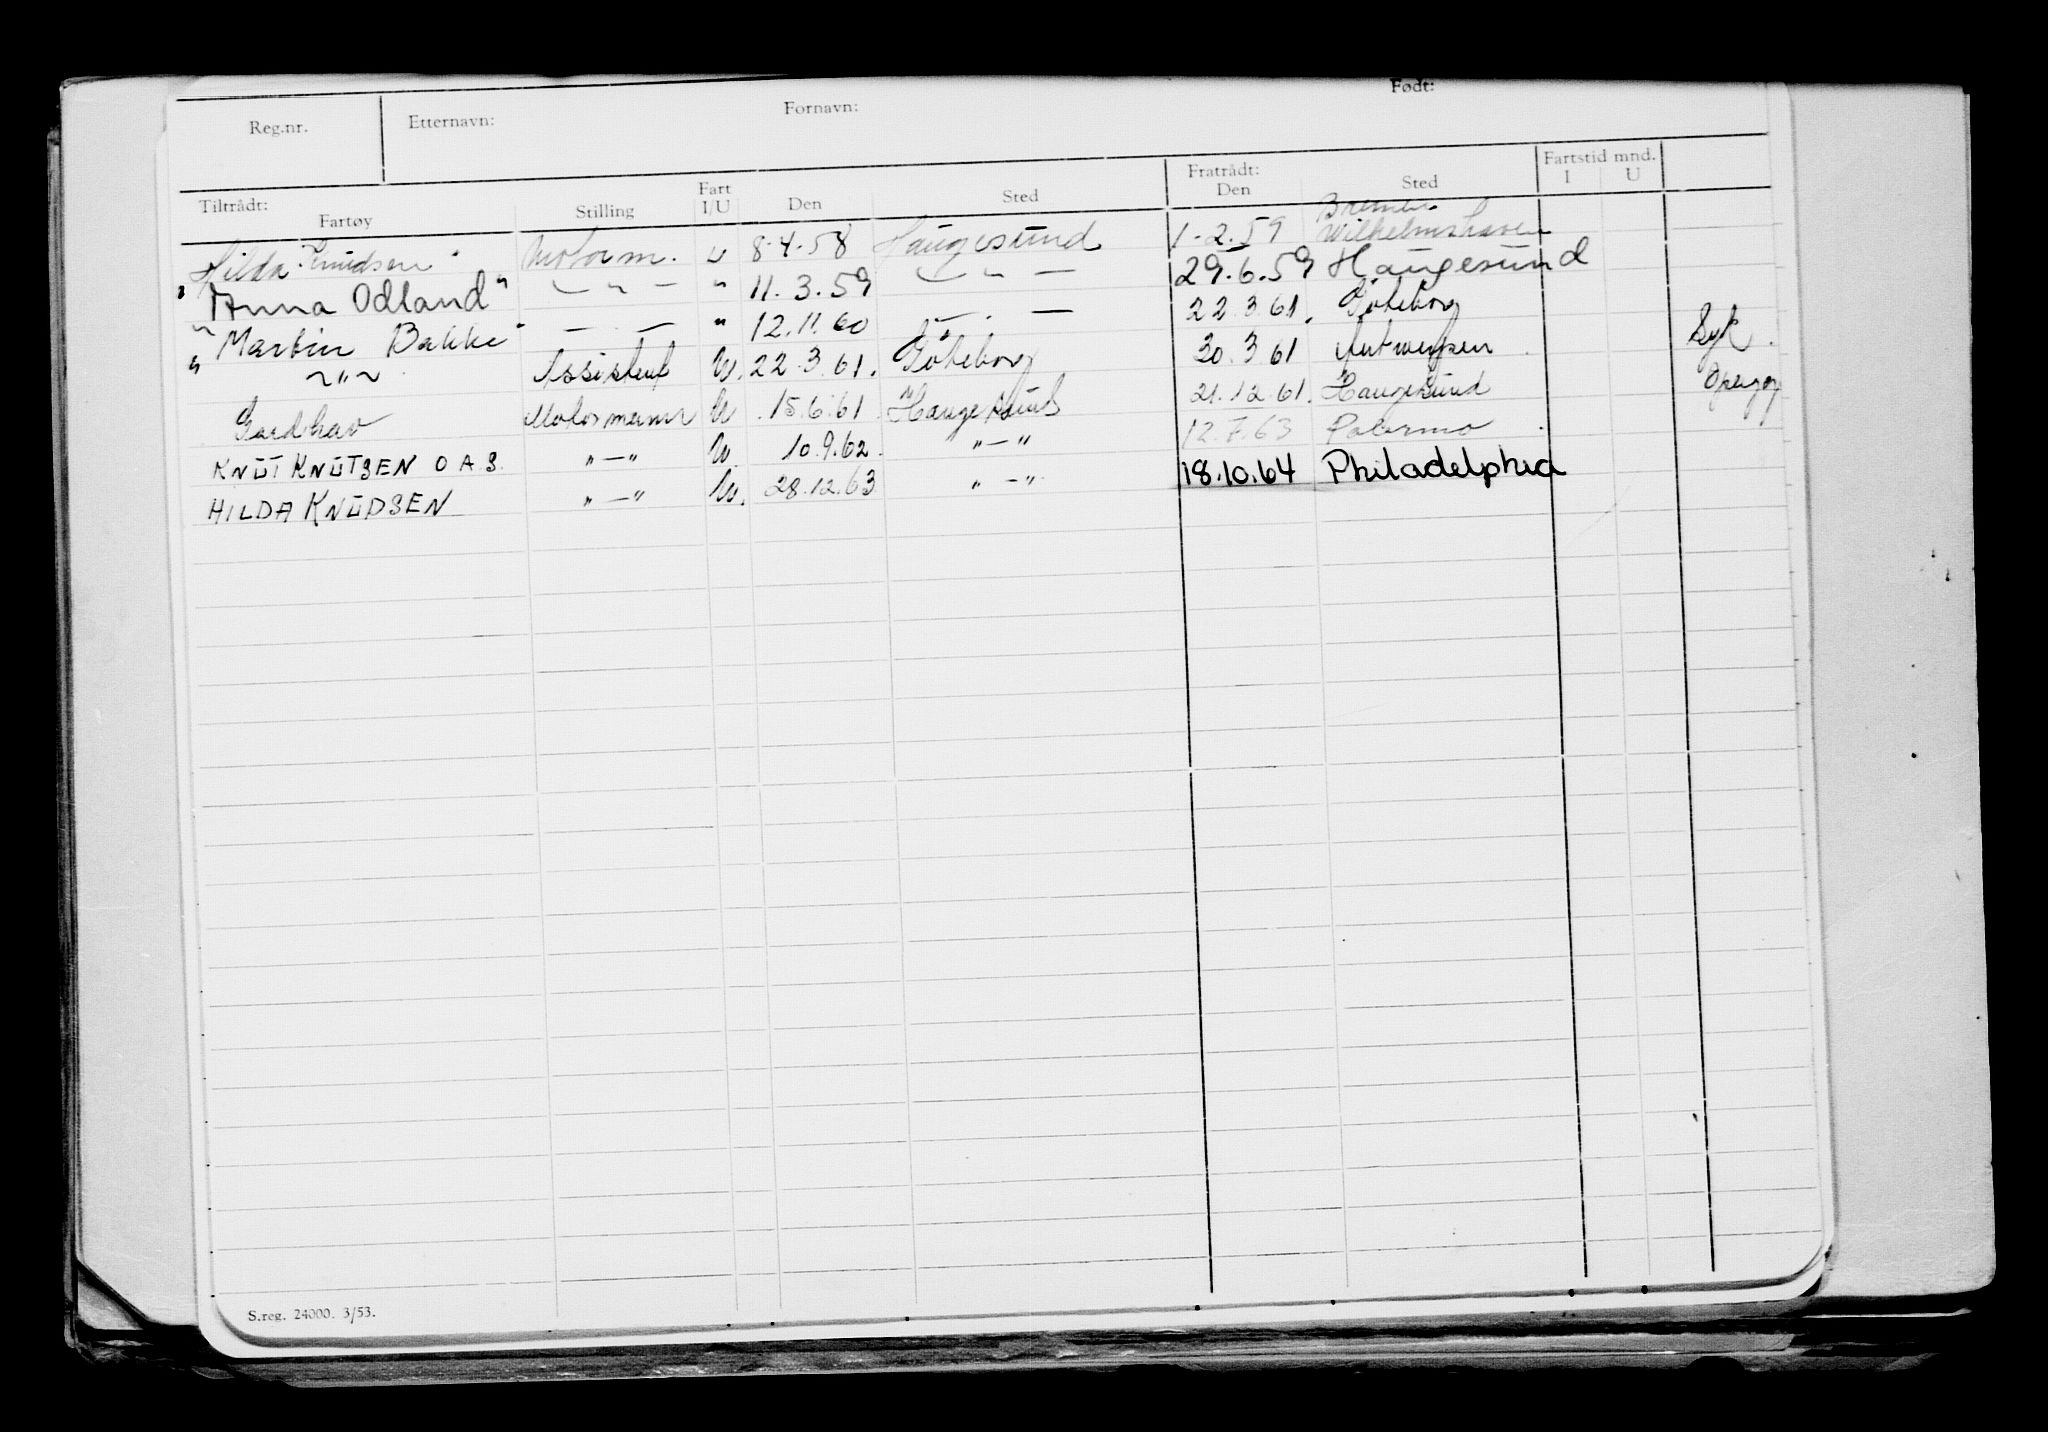 Reg.nr. Etternavn: Fornavn: Født:
Tiltrådt: Fratrådt: Fartstid mnd.
Fartøy Stilling Fart I/U Den Sted Den Sted I U
Bremen
"Hilda Knudsen" Motorm. u 8.4.58 Haugesund 1.2.59 Wilhelmshaven
"Anna Odland" — " — " 11.3.59 — " — 29.6.59 Haugesund
"Martin Bakke" — . — " 12.11.60 — . — 22.3.61. Göteborg
~"~ Assistent U. 22.3.61. Göteborg 30.3.61 Antwerpen Syk.
Gardhav Motormann U 15.6.61 Haugesund 21.12.61. Haugesund
KNUT KNUTSEN O A.S. "—" U 10.9.62. "—" 12.7.63 Palermo
HILDA KNUDSEN "—" U. 28.12.63 "—" 18.10.64 Philadelphia
S.reg. 24000. 3/53.